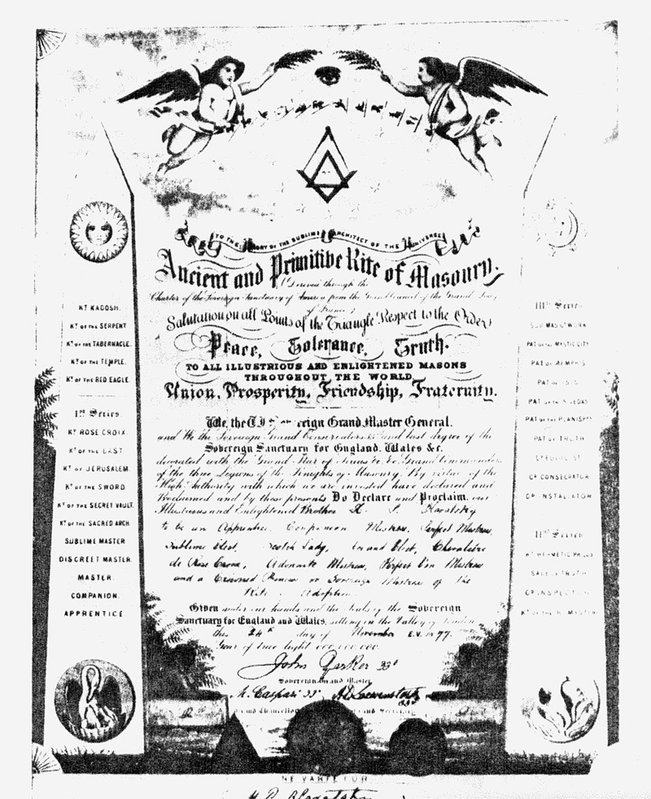 TO THE GLORY OF THE SUBLIME ARCHITECT OF THE UNIVERSE
Ancient and Primitive Rite of Masonry.
(Derived through the
Charter of the Sovereign Sanctuary of America from the Grand Council of the Grand
of France)
Salutation on all Points of the Triangle Respect to the Order
Peace, Tolerance, Truth.
TO ALL ILLUSTRIOUS AND ENLIGHTENED MASONS
THROUGHOUT THE WORLD
Union, Prosperity, Friendship, Fraternity.
We, the reign Grand Master General.
and We the Sovereign Grand Conservators and last degree of the
Sovereign Sanctuary for England, Wales &c.
decorated with the Grand Star of Grand Commanders
of the three Legions of the Knights of Masonry, By virtue of the
High Authority with which we are invested have declared and
Proclaimed and by these presents Do Declare and Proclaim our
Illustrious and Enlightened Brother H. P. Blavatsky
to be an Apprentice Companion Mistress, Perfect Mistress,
Sublime Elect, Scotch Lady, Grand Elect, Chevaliere
de Rose Croix, Adonaite Mistress, Perfect Mistress
and a Crowned Princess Mistress of the
Rite of Adoption.
Given under our hands and the Seals of the Sovereign
Sanctuary for England and Wales, sitting in the Valley of London
this 24th day of November 1877
Year of true light 000,000,000.
John Yarker 33°
Sovereign Grand Master
M. Caspari 33° A D Loewenstark
33°
Grand Chancellor Grand Secretary
KT KADOSH.
KT OF THE SERPENT
KT OF THE TABERNACLE.
KT OF THE TEMPLE.
KT OF THE RED EAGLE
1st Series
KT ROSE CROIX
KT OF THE EAST
KT OF JERUSALEM.
KT OF THE SWORD
KT OF THE SECRET VAULT.
KT OF THE SACRED ARCH.
SUBLIME MASTER
DISCREET MASTER.
MASTER.
COMPANION.
APPRENTICE.
IIIrd Series
PAT OF MEMPHIS
PAT OF ISIS
PAT OF THE VEDAS
PAT OF THE PLANISPH
PAT OF TRUTH
GD CONSERVATOR
GD INSTALLATOR
IInd Series
KT HERMETIC PHILOS
GD INSPECTOR
NE VARIETUR
H P Blavatsky